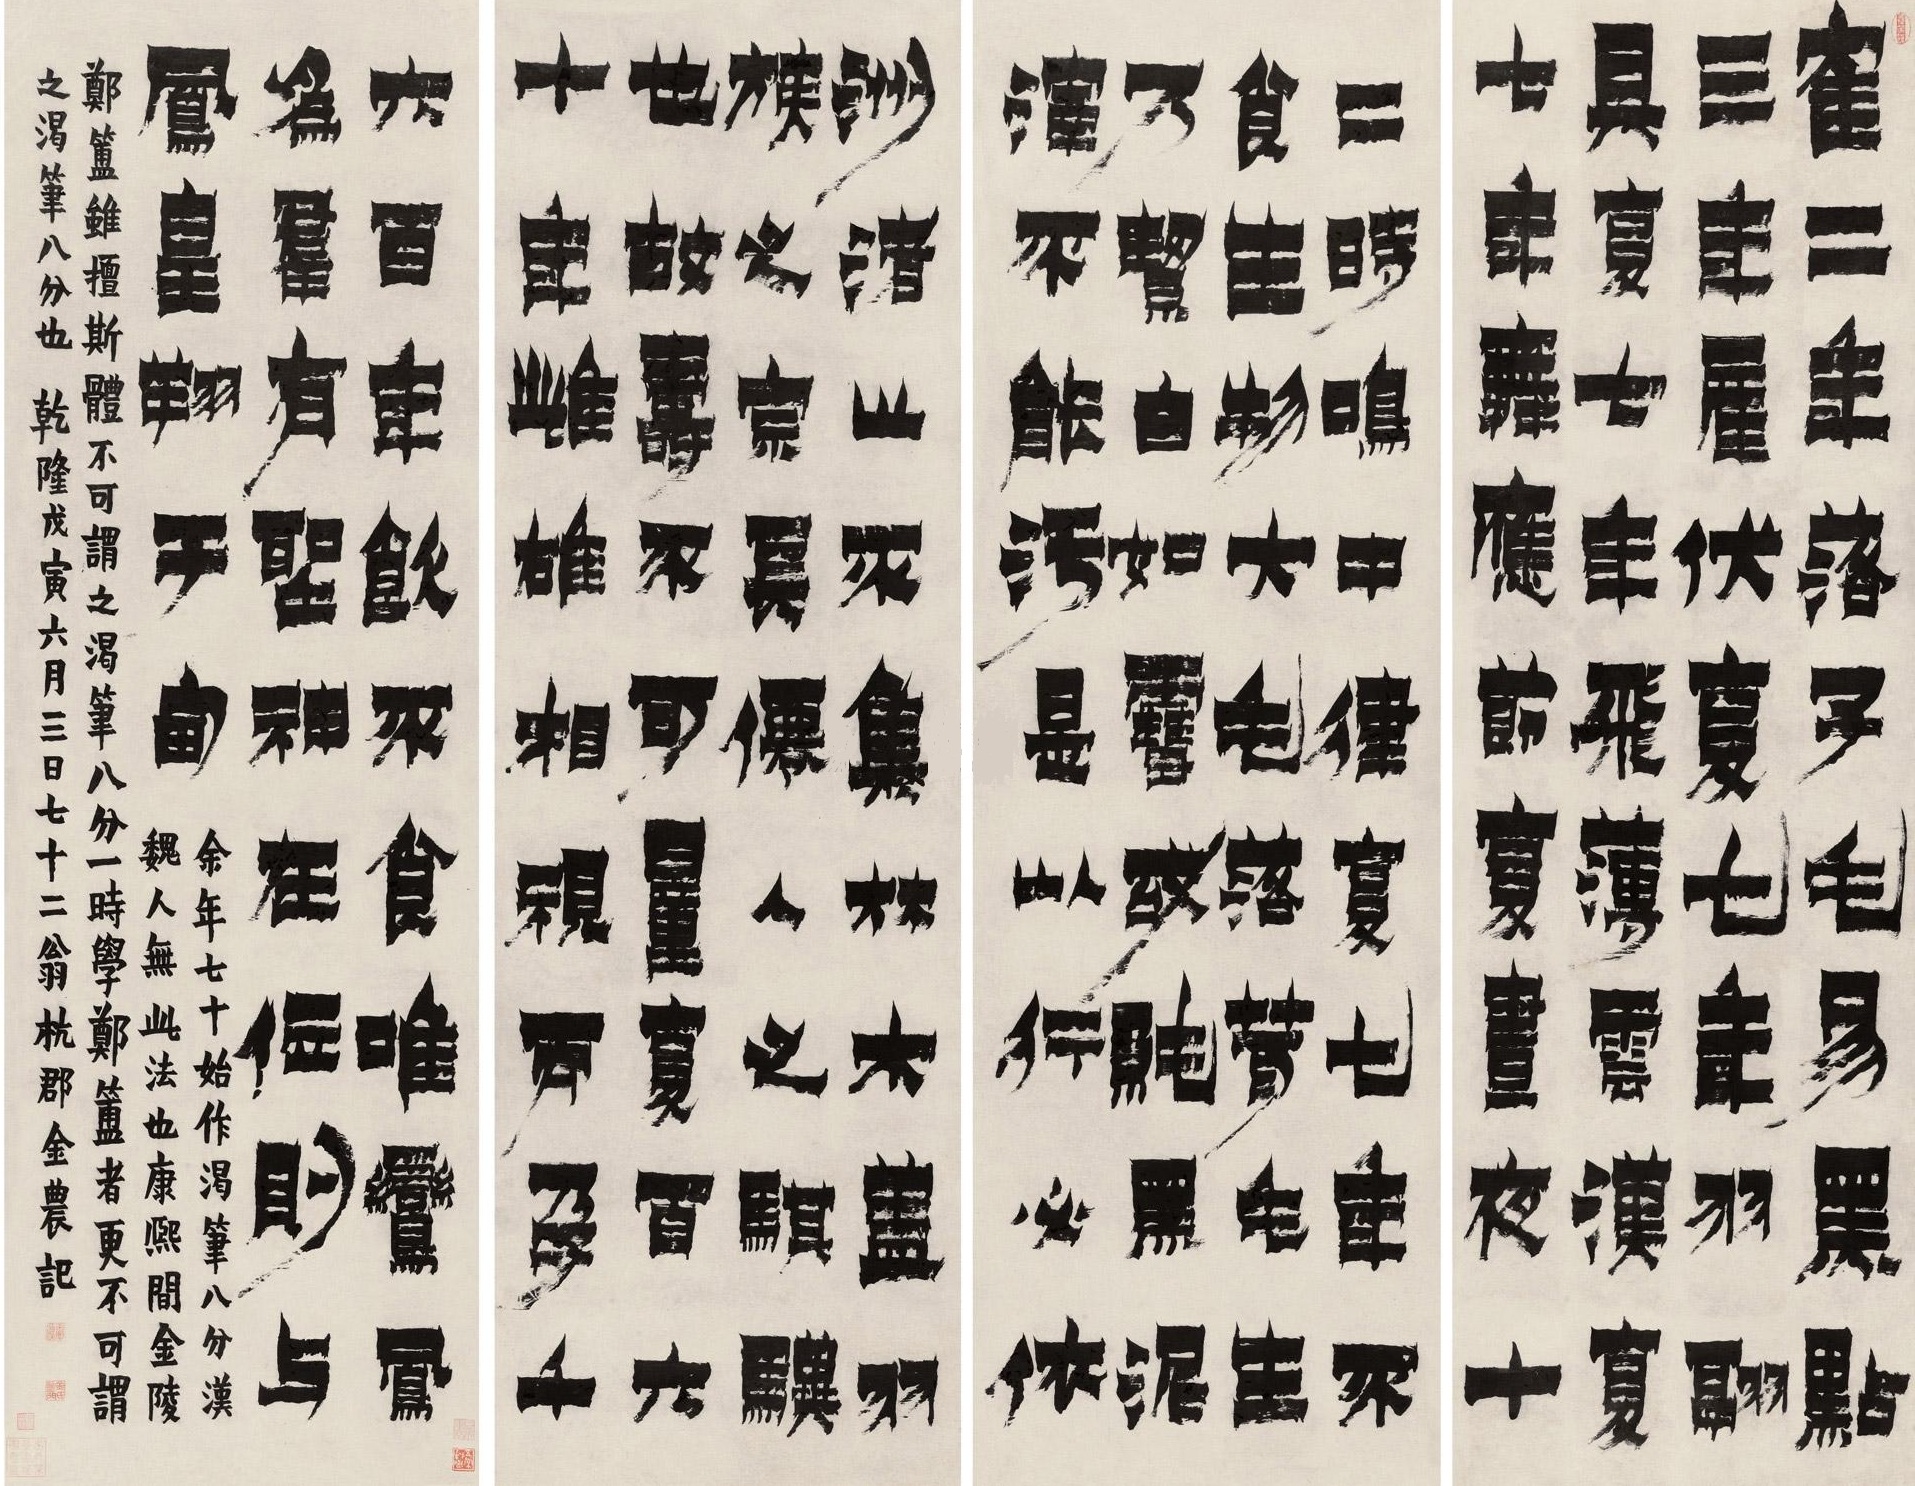 隺二年落子毛易黑點
三年産伏复七年羽翮
具复七年飛薄雲漢复
七年舞應節复晝夜十
二時鳴中律复七年不
食生物大毛落茸毛生
乃白如雪故黑泥
渾不能污是以行必依
洲渚止不集林木蓋羽
族之宗真僊人之騏驥
也故壽不可量复百六
十年雌雄相視而孕千
六百年飲不食唯鸞鳳
為羣有聖神在位則与
鳳皇翔于甸
余年七十始作渴筆八分漢
魏人無此法也康熙間金陵
鄭簠雖擅斯體不可謂之渴筆八分一時學鄭簠者更不可謂
之渴筆八分也 乾隆戊寅六月三日七十二翁杭郡金農記